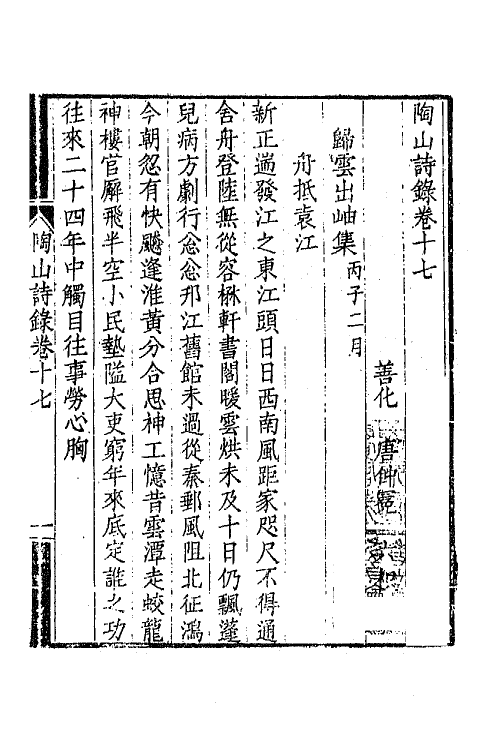 陶山詩錄卷十七
善化　唐仲冕
歸雲出岫集丙子二月
舟抵袁江
新正遄發江之東江頭日日西南風距家咫尺不得通
舍舟登陸無從容楙軒書閣暖雲烘未及十日仍飄蓬
兒病方劇行忩忩邗江舊館未過從秦郵風阻北征鴻
今朝忽有快颷逢淮黃分合思神工憶昔雲潭走蛟龍
神樓官廨飛半空小民墊隘大吏窮年來底定誰之功
往來二十四年中觸目往事勞心胸
陶山詩錄卷十七
一